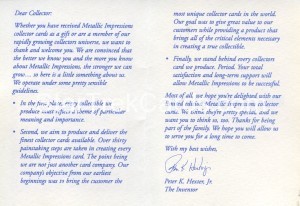 Dear Collector:
Whether you have received Metallic Impressions
collector cards as a gift or are a member of our
rapidly growing collectors universe, we want to
thank and welcome you. We are convinced that
the better we know you and the more you know
about Metallic Impressions, the stronger we can
grow ... so here is a little something about us.
We operate under some pretty sensible
guidelines.
• In the first place, every collectible we
produce must reflect a theme of particular
meaning and importance.
• Second, we aim to produce and deliver the
finest collector cards available. Over thirty
painstaking steps are taken in creating every
Metallic Impressions card. The point being
we are not just another card company. Our
company's objective from our earliest
beginnings was to bring the customer the
most unique collector cards in the world.
Our goal was to give great value to our
customers while providing a product that
brings all of the critical elements necessary
in creating a true collectible.
• Finally, we stand behind every collectors
card we produce. Period. Your total
satisfaction and long-term support will
allow Metallic Impressions to be successful.
Most of all, we hope you're delighted with our
Metallic Impressions collector
cards. We think they're pretty special, and we
want you to think so, too. Thanks for being
part of the family. We hope you will allow us
to serve you for a long time to come.
With my best wishes,
Peter K. Hester, Jr.
The Inventor